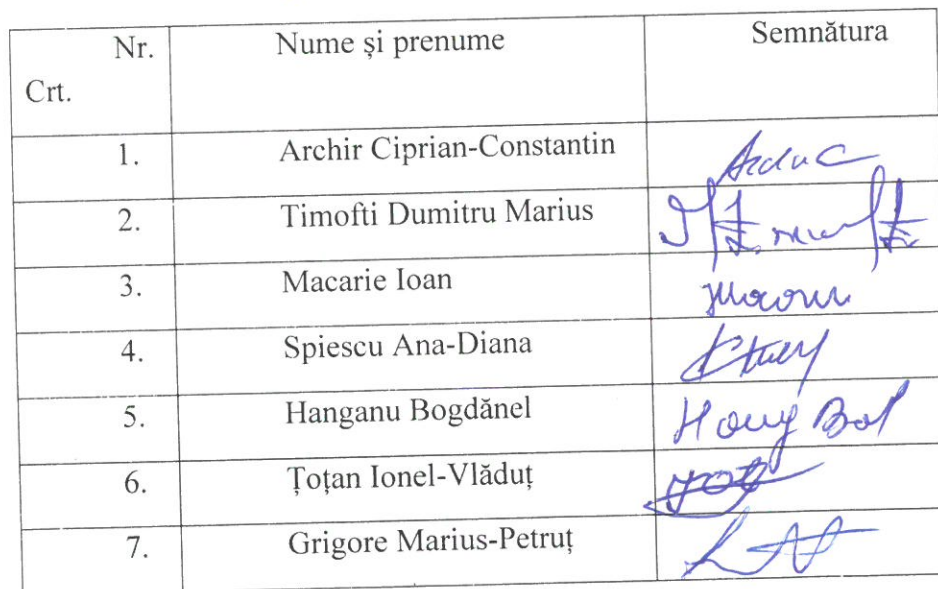 Nr. Crt. Nume și prenume Semnătura
1. Archir Ciprian-Constantin
2. Timofti Dumitru Marius
3. Macarie Ioan
4. Spiescu Ana-Diana
5. Hanganu Bogdănel
6. Țoțan Ionel-Vlăduț
7. Grigore Marius-Petruț